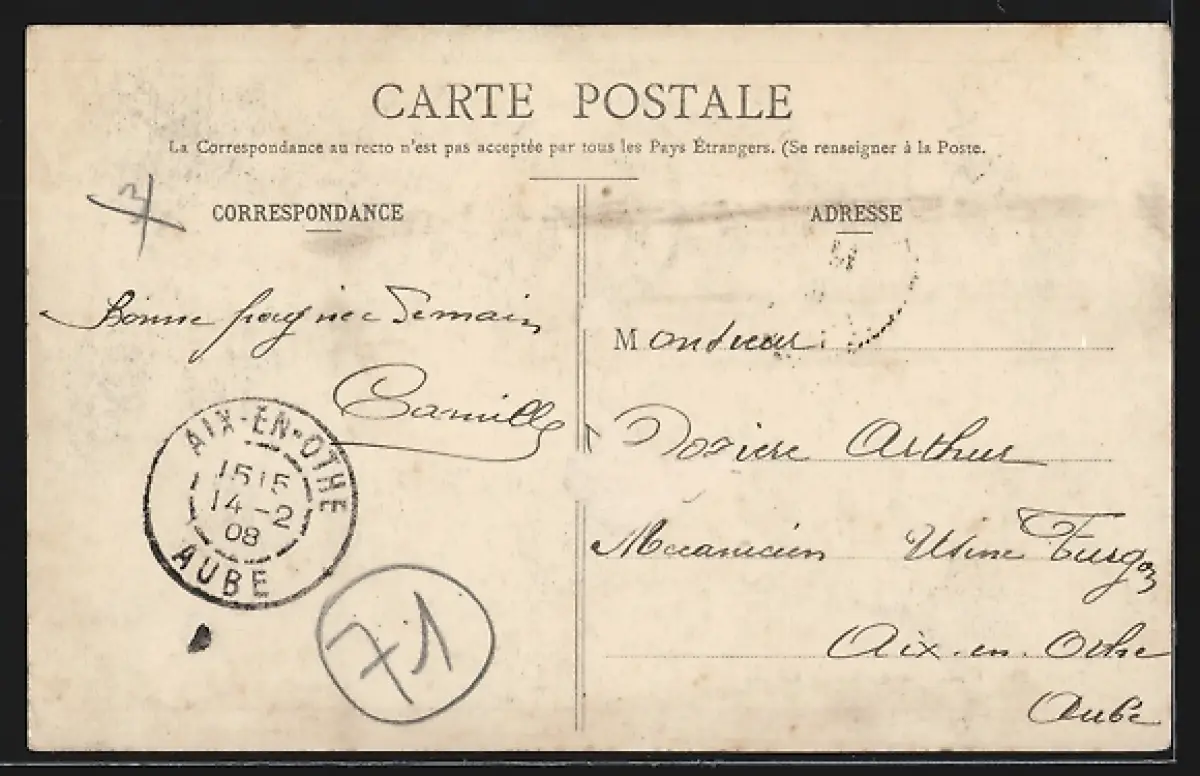 CARTE POSTALE
La Correspondance au recto n'est pas acceptée par tous les Pays Étrangers. (Se renseigner à la Poste.
CORRESPONDANCE
Bonne demain
Camille
AIX-EN-OTHE
15 15
14 - 2
08
AUBE
71
ADRESSE
Monsieur
Arthur
Mecanicien Usine
Aix-en-Othe
Aube